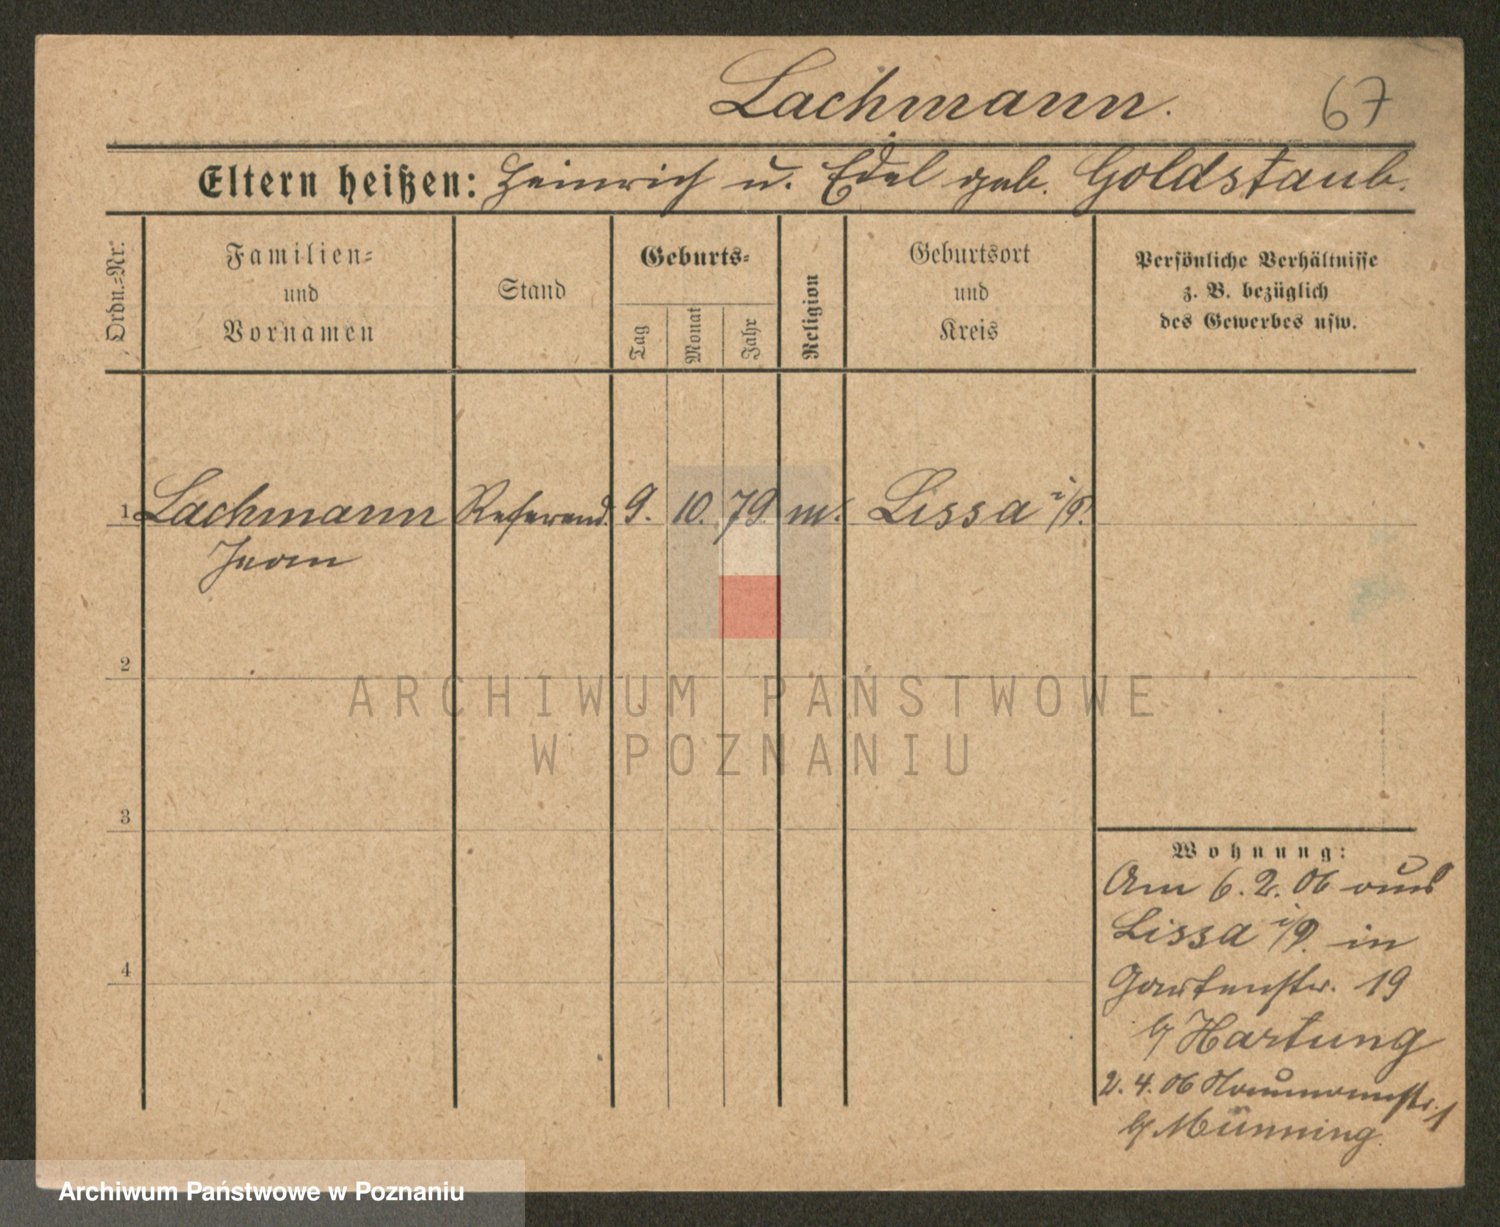 Lachmann.
67
Eltern heißen: Heinrich u. Edel geb. Goldstaub.
Ordn.-Nr.
Familien-
und
Vornamen
Stand
Geburts-
Tag
Monat
Jahr
Religion
Geburtsort
und
Kreis
Persönliche Verhältnisse
z. B. bezüglich
des Gewerbes usw.
1 Lachmann Referend. 9. 10. 79. m. Lissa i/P.
2
3
4
Wohnung:
Am 6. 2. 06 aus
Lissa i/P. in
Gartenstr. 19
b/ Hartung
2. 4. 06 Naumannstr. 1
b/ Münning
ARCHIWUM PAŃSTWOWE
W POZNANIU
Archiwum Państwowe w Poznaniu